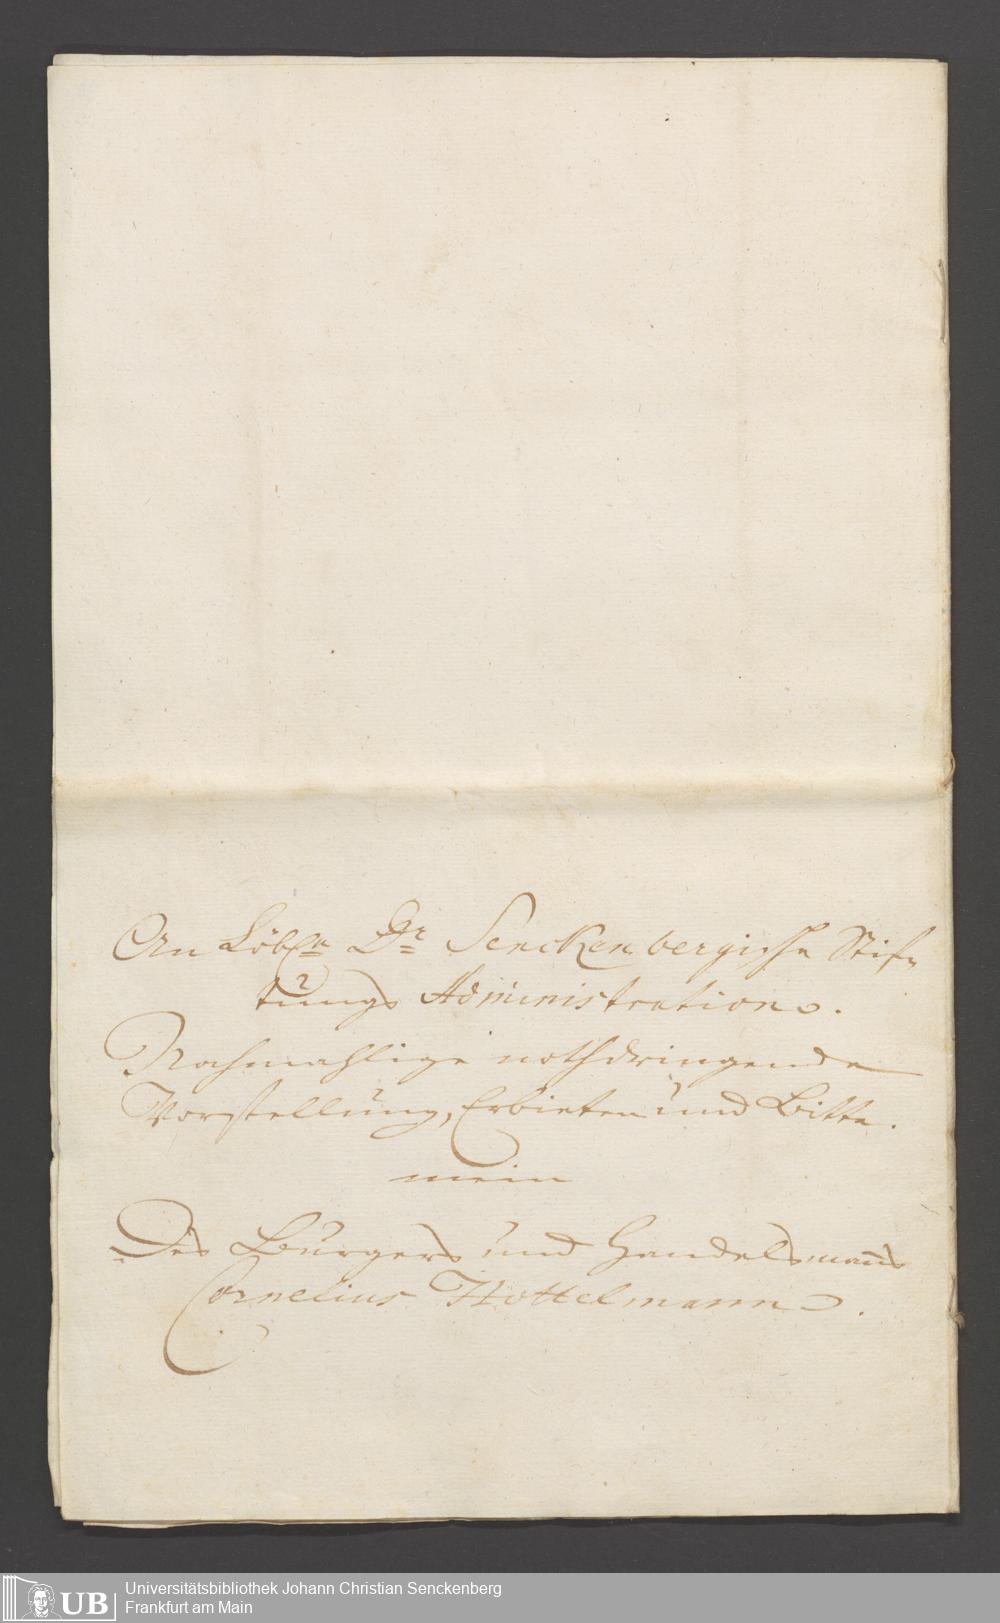 An Löbl. Dr. Senckenbergische Stif-
tungs Administration.
Nochmahlige nothdringende
Vorstellung, Erbieten und Bitte.
mein
Des Burgers und Handelsmans
Cornelius Hottelmann.
UB
Universitätsbibliothek Johann Christian Senckenberg
Frankfurt am Main